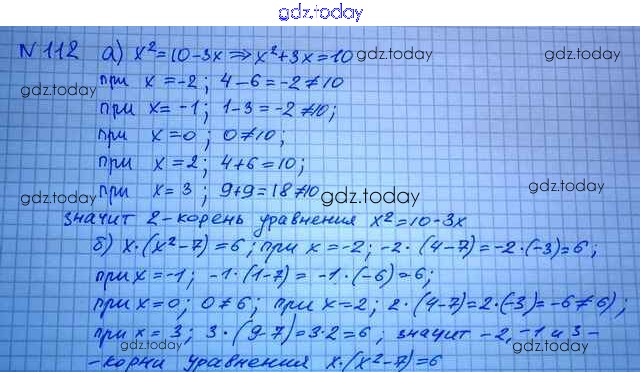 gdz.today
N 112 а) x²=10-3x⇒x²+3x=10
gdz.today gdz.today
при x=-2; 4-6=-2≠10
gdz.today gdz.today
при x=-1; 1-3=-2≠10;
при x=0; 0≠10;
gdz.today gdz.today
при x=2; 4+6=10;
при x=3; 9+9=18≠10
gdz.today gdz.today
значит 2-корень уравнения x²=10-3x
б) x·(x²-7)=6; при x=-2; -2·(4-7)=-2·(-3)=6;
gdz.today gdz.today
при x=-1; -1·(1-7)= -1·(-6)=6;
при x=0; 0≠6; при x=2; 2·(4-7)=2·(-3)=-6≠6);
gdz.today
при x=3; 3·(9-7)=3·2=6; значит -2,-1 и 3-
gdz.today gdz.today
-корни уравнения x·(x²-7)=6
gdz.today